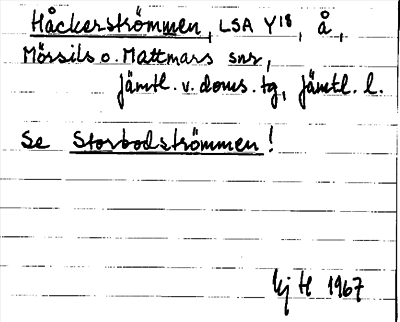 Håckerströmmen, LSA Y18, å,
Mörsils o. Mattmars snr,
Jämtl. v. doms. tg, Jämtl. l.
Se Storbodströmmen!
hj H 1967